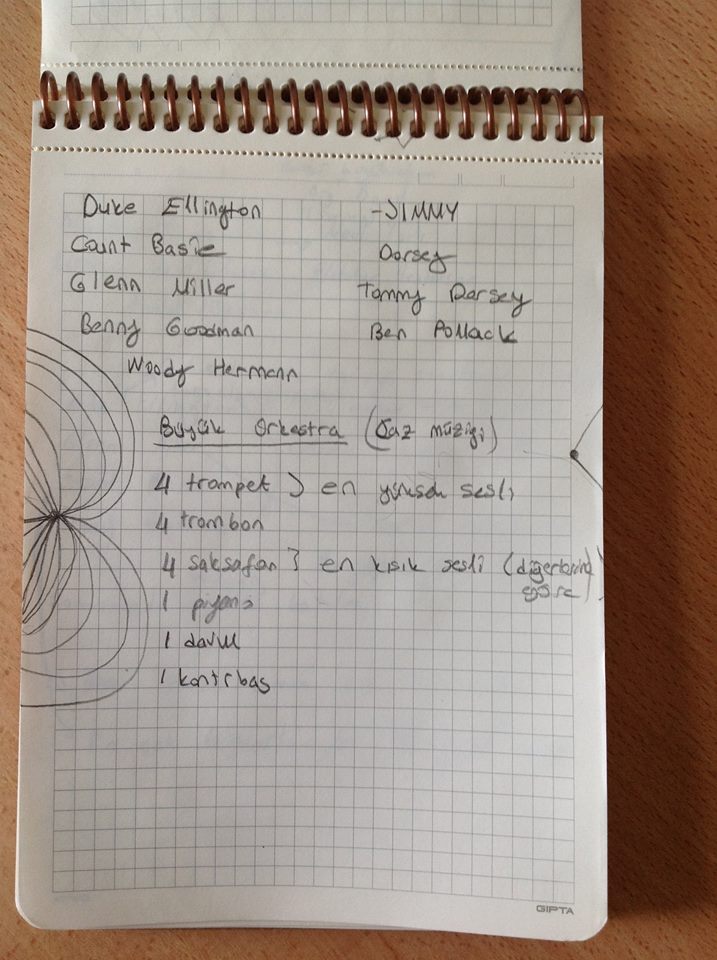 Duke Ellington
Count Basie
Glenn Miller
Benny Goodman
Woody Hermann
-JIMMY
Dorsey
Tommy Dorsey
Ben Pollack
Büyük Orkestra (Caz müziği)
4 trompet } en yüksek sesli
4 trombon
4 saksafon } en kısık sesli (diğerlerine
göre)
1 piyano
1 davul
1 kontrbas
GIPTA